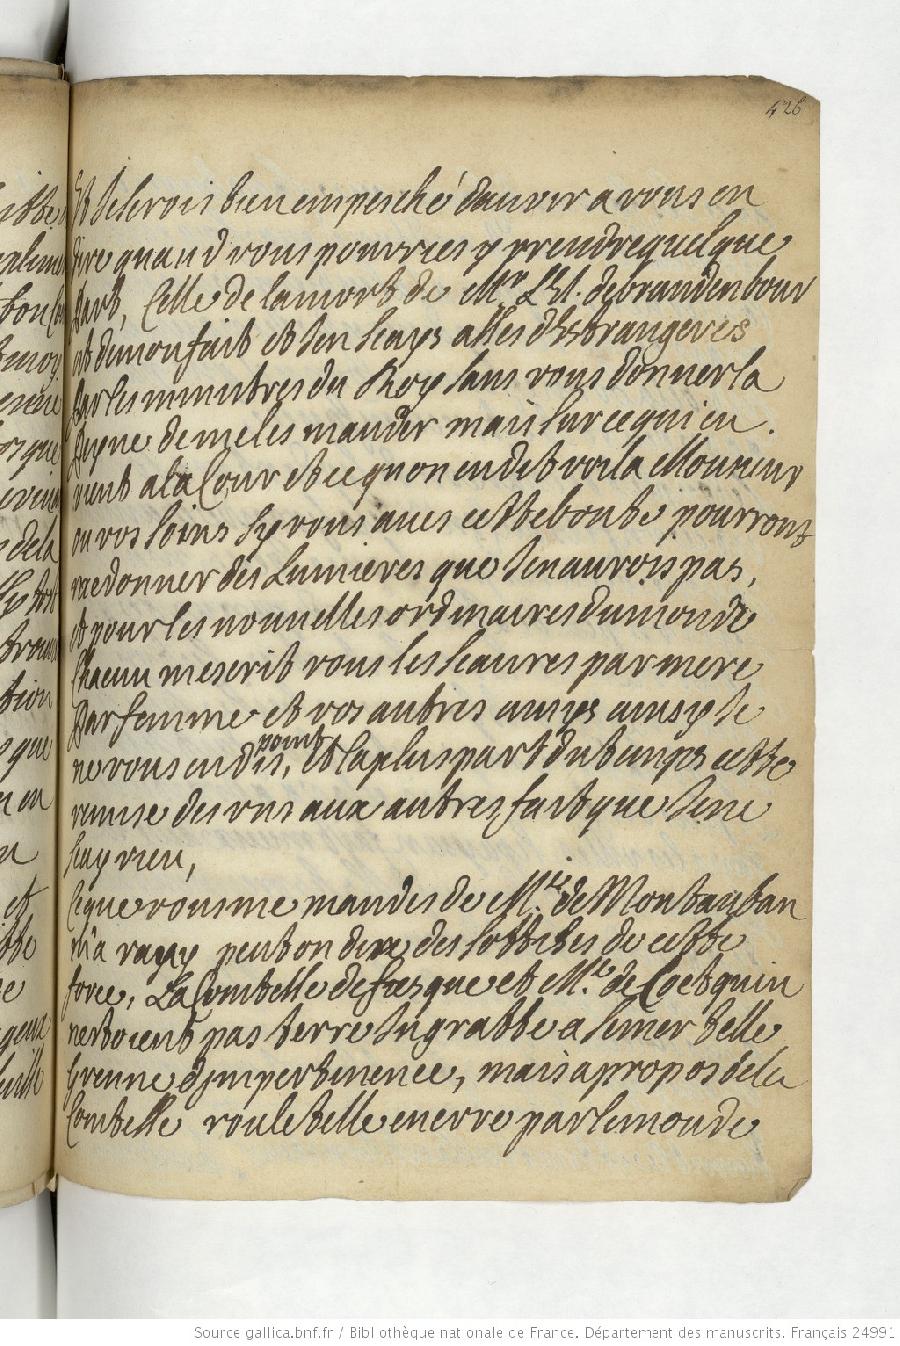 426
Et Ieserois bien empesché dauvoir a vous en
dire quand vous pourries y prendre quelque
part, Celle de la mort de Mr LEl. de brandenbour
et de mon fait et Ien scays asses d'Estrangeres
par les ministres du Roy sans vous donner la
peyne de me les mander mais sur ce qui en
vient a la Cour et ce quon en dit voila Monsieur
ou vos soins sy vous aves cette bonte pourront
me donner des Lumieres que Ienaurois pas,
et pour les nouvelles ordinaires du monde
Chacun mescrit vous les scaures par mere
par femme et vos autres amys ainsy Ie
ne vous en dis point, et la plus part du temps cette
remise des uns aux autres fait que Ie ne
scay rien,
Ce que vous me mandes de Mlle de Montauban
m'a ravy peut on dire des sottises de cette
force, La Comtesse de fiesque et Mlle de Coetquin
nestoient pas terre Ingratte a semer telle
graine dimpertinence, mais a propos de la
Comtesse roule telle encore par le monde
Source gallica.bnf.fr / Bibliothèque nationale de France. Département des manuscrits. Français 24991